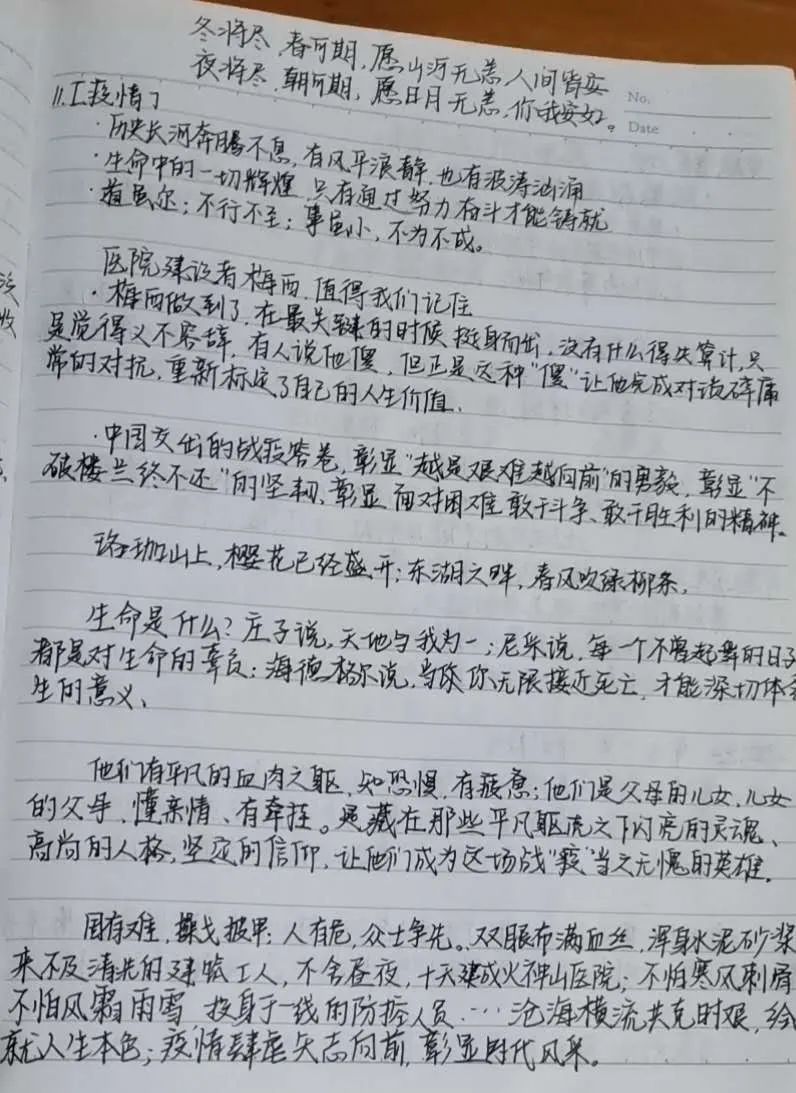 冬将尽,春可期,愿山河无恙,人间皆安
夜将尽,朝可期,愿日月无恙,你我安好。
No.
Date
11.
疫情
·历史长河奔腾不息,有风平浪静,也有波涛汹涌
·生命中的一切辉煌,只有通过努力奋斗才能铸就
·道虽尔;不行不至;事虽小,不为不成。
医院建设者梅西,值得我们记住
·梅西做到了,在最关键的时候挺身而出,没有什么得失算计,只
是觉得义不容辞,有人说他傻,但正是这种“傻”让他完成对
常的对抗,重新标定了自己的人生价值.
·中国交出的战疫答卷,彰显“越是艰难越向前”的勇毅,彰显“不
破楼兰终不还”的坚韧,彰显面对困难敢于斗争、敢于胜利的精神。
珞珈山上,樱花已经盛开;东湖之畔,春风吹绿柳条,
生命是什么?庄子说,天地与我为一;尼采说,每一个不曾起舞的日子
都是对生命的辜负;海德格尔说,当你无限接近死亡,才能深切体
生的意义、
他们有平凡的血肉之躯,知恐惧,有疲惫;他们是父母的儿女,儿女
的父母,懂亲情、有牵挂。是藏在那些平凡躯壳之下闪亮的灵魂、
高尚的人格,坚定的信仰,让他们成为这场战“疫”当之无愧的英雄.
国有难,操戈披甲;人有危,众士争先。双眼布满血丝,浑身水泥砂浆
来不及清洗的建筑工人,不舍昼夜,十天建成火神山医院;不怕寒风刺骨
不怕风霜雨雪 投身于一线的防控人员…沧海横流共克时艰,绘
就人生本色;疫情肆虐矢志向前,彰显时代风采。
没
收